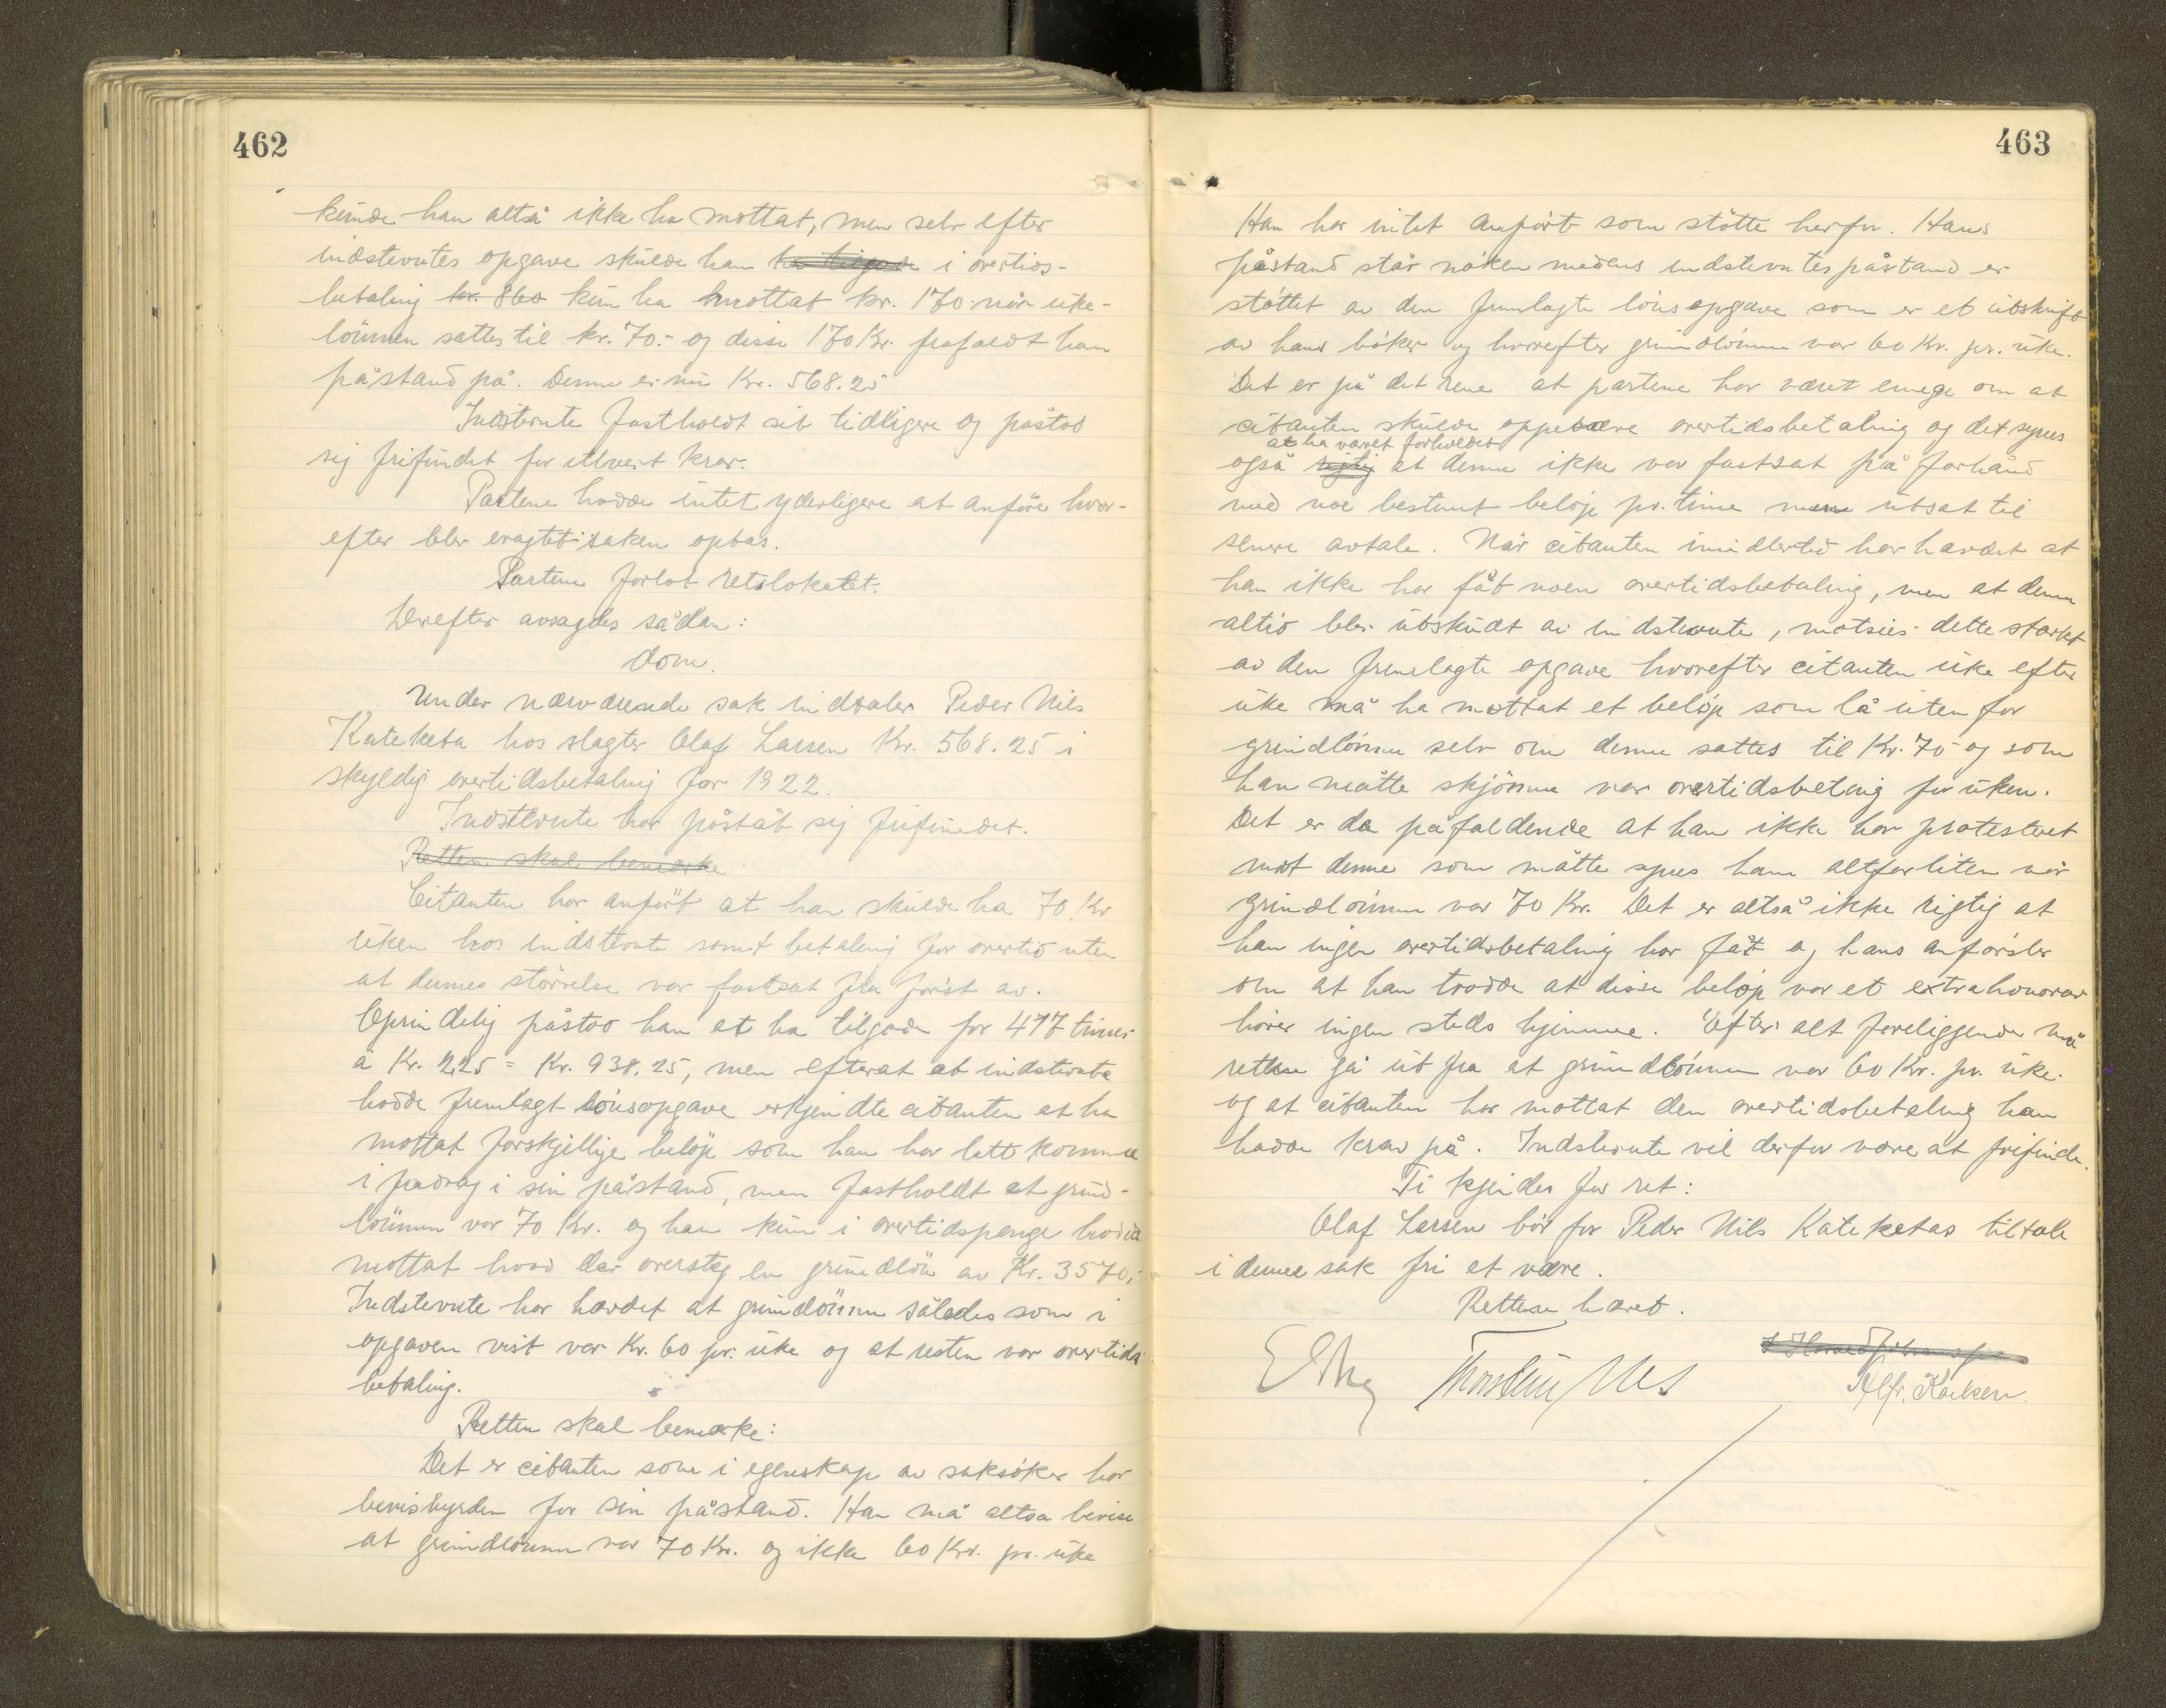 462
kunde han altså ikke ha mottat, men selv efter
indstevntes opgave skulde han ha tilgode i overtids-
betaling kr. 860 kun ha mottat kr. 170 når uke-
lönnen sattes til kr. 70.- og disse 170 Kr. frafaldt han
påstand på. Denne er nu Kr. 568.25
Indstevnte fastholdt sit tidligere og påstod
sig frifundet for ethvert krav.
Partene hadde intet yderligere at anföre hvor-
efter blev eragtet: saken optas.
Partene forlot retslokalet.
Derefter avsagdes sådan:
dom.
Under nærværende sak indtaler Peder Nils
Kateketa hos slagter Olaf Larsen Kr. 568.25 i
skyldig overtidsbetaling for 1922.
Indstevnte har påståt sig frifundet.
Retten skal bemærke
Citanten har anfört at han skulde ha 70 Kr
uken hos indstevnte samt betaling for overtid uten
at dennes störrelse var fastsat fra först av.
Oprindelig påstod han at ha tilgode for 417 timer
à Kr. 2,25 = Kr. 938.25, men efterat at indstevnte
hadde fremlagt lönsopgave erkjendte citanten at ha
mottat forskjellige belöp som han har latt komme
i fradrag i sin påstand, men fastholdt at grund-
lönnen var 70 Kr. og han kun i overtidspenge hadde
mottat hvad der oversteg en grundlön av Kr. 3570,-
Indstevnte har hævdet at grundlönnen således som i
opgaven vist var Kr. 60 pr. uke og at resten var overtids
betaling.
Retten skal bemærke:
Det er citanten som i egenskap av saksöker har
bevisbyrden for sin påstand. Han må altsa bevise
at grundlönnen var 70 Kr. og ikke 60 Kr. pr. uke
463
Han har intet anfört som stötte herfor. Hans
påstand står naken medens indstevntes påstand er
stöttet av den fremlagte lönsopgave som er et utskrift
av hans böker og hvorefter grundlönnen var 60 Kr. pr. uke.
Det er på det rene at partene har været enige om at
citanten skulde oppebære overtidsbetaling og det synes
at ha været forholdet
også rigtig at denne ikke var fastsat på forhånd
med noe bestemt belöp pr. time men utsat til
senere avtale. Når citanten imidlertid har hævdet at
han ikke har fåt noen overtidsbetaling, men at denne
altid blev utskudt av indstevnte, motsies dette stærkt
av den fremlagte opgave hvorefter citanten uke efter
uke må ha mottat et belöp som lå uten for
grundlönnen selv om denne sattes til Kr. 70 og som
han måtte skjönne var overtidsbetalng for uken.
Det er da påfaldende at han ikke har protestert
mot denne som måtte synes ham altfor liten når
grundlönnen var 70 Kr. Det er altså ikke rigtig at
han ingen overtidsbetaling har fåt og hans anförsler
om at han trodde at disse belöp var et extrahonorar
hörer ingen steds hjemme. Efter alt foreliggende må
retten gå ut fra at grundlönnen var 60 Kr. pr. uke
og at citanten har mottat den overtidsbetaling han
hadde krav på. Indstevnte vil derfor være at frifinde.
Ti kjendes for ret:
Olaf Larsen bör for Peder Nils Kateketas tiltale
i denne sak fri at være.
Retten hævet.
Thorstein Nes
Alfr. Karlsen.